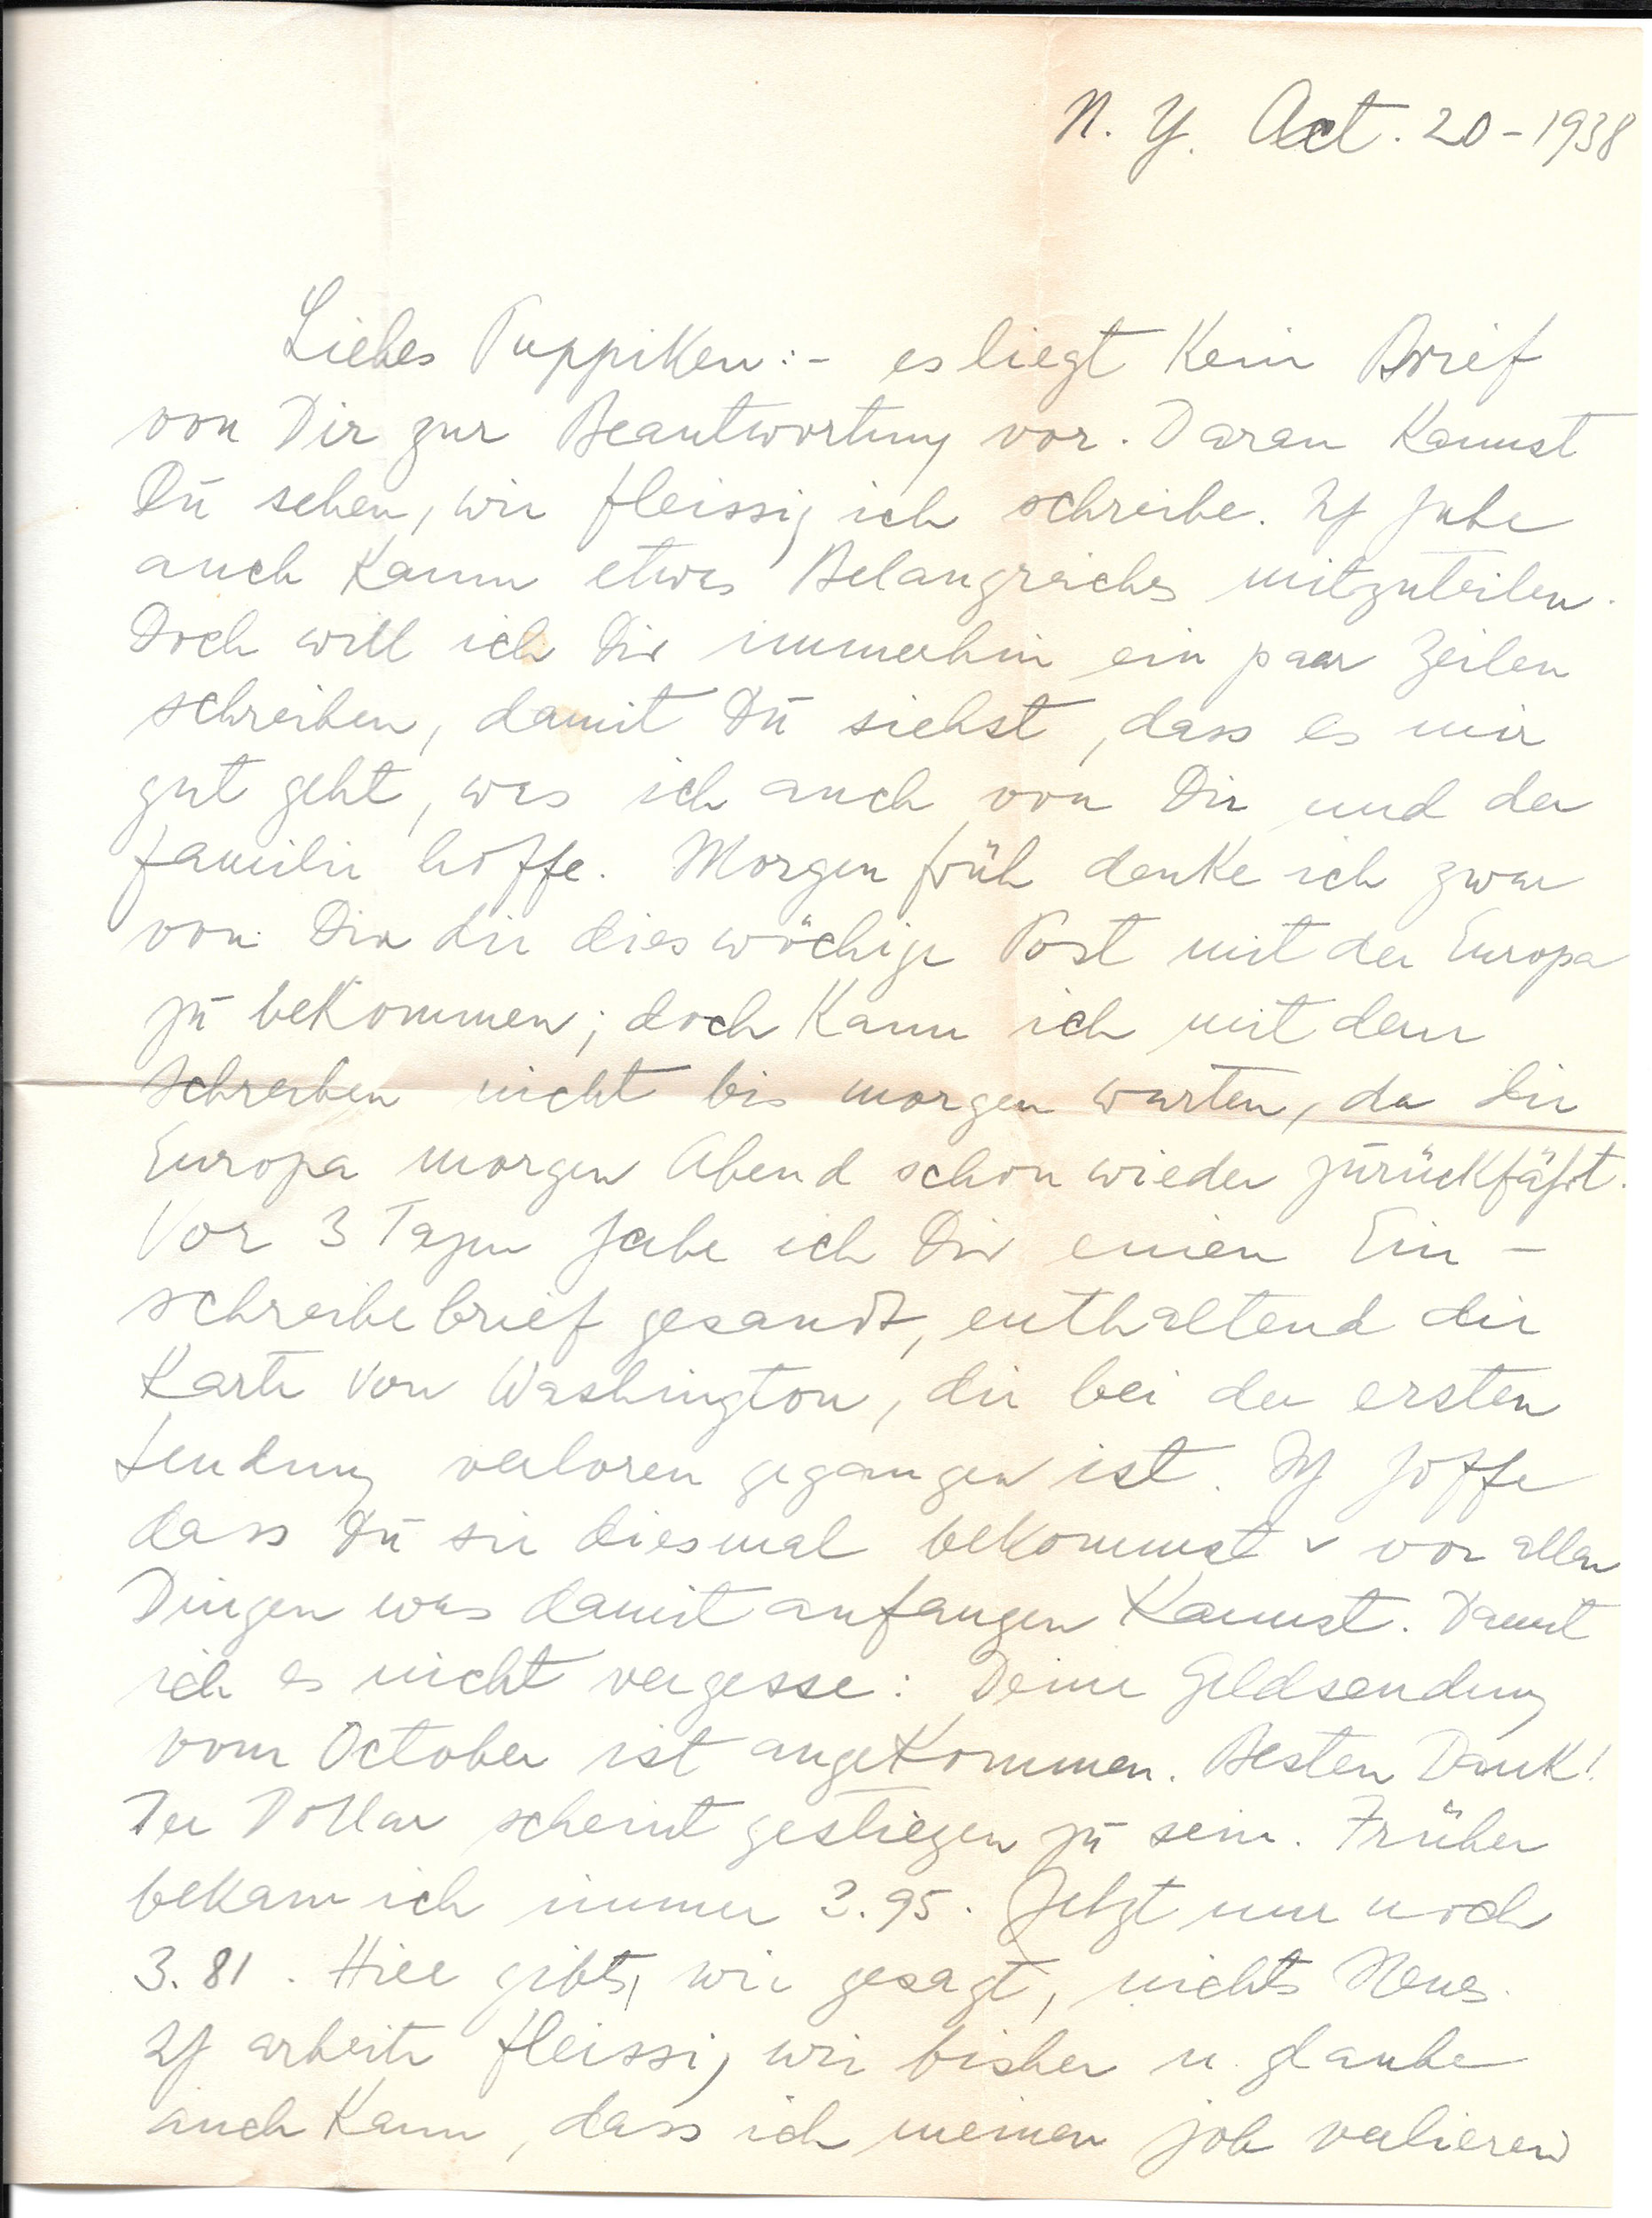 N. Y. Oct. 20 - 1938
Liebes Puppiken: - es liegt kein Brief
von Dir zur Beantwortung vor. Daran kannst
Du sehen, wie fleissig ich schreibe. Ich habe
auch kaum etwas Belangreiches mitzuteilen.
Doch will ich Dir immerhin ein paar Zeilen
schreiben, damit Du siehst, dass es mir
gut geht, was ich auch von Dir und der
Familie hoffe. Morgen früh denke ich zwar
von Dir die dieswöchige Post mit der Europa
zu bekommen; doch kann ich mit dem
Schreiben nicht bis morgen warten, da die
Europa morgen Abend schon wieder zurückfährt.
Vor 3 Tagen habe ich Dir einen Ein -
schreibebrief gesandt, enthaltend die
Karte von Washington, die bei der ersten
Sendung verloren gegangen ist. Ich hoffe
dass Du sie diesmal bekommst & vor allen
Dingen was damit anfangen kannst. Damit
ich es nicht vergesse: Deine Geldsendung
vom October ist angekommen. Besten Dank!
Der Dollar scheint gestiegen zu sein. Früher
bekam ich immer 3.95. Jetzt nur noch
3.81. Hier gibts, wie gesagt, nichts Neues.
Ich arbeite fleissig wie bisher u. glaube
auch kaum, dass ich meinen job verlieren